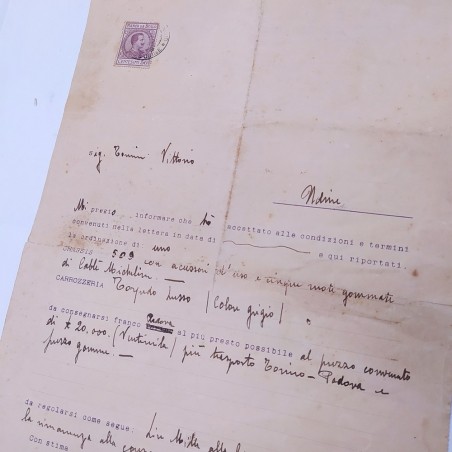 Sig. Tonini Vittorio
Udine
Mi pregio informare che ho accettato alle condizioni e termini
convenuti nella lettera in data di e qui riportati.
la ordinazione di uno
CHASSIS 509 con accessori d'uso e cinque ruote gommate
di Cablé Michelin
CARROZZERIA Torpedo Lusso (Colore grigio)
da consegnarsi franco Padova al più presto possibile al prezzo convenuto
di £ 20.000. (Ventimila) più trasporto Torino - Padova e
prezzo gomme. —
da regolarsi come segue: Lire Mille alla
la rimanenza alla
Con stima